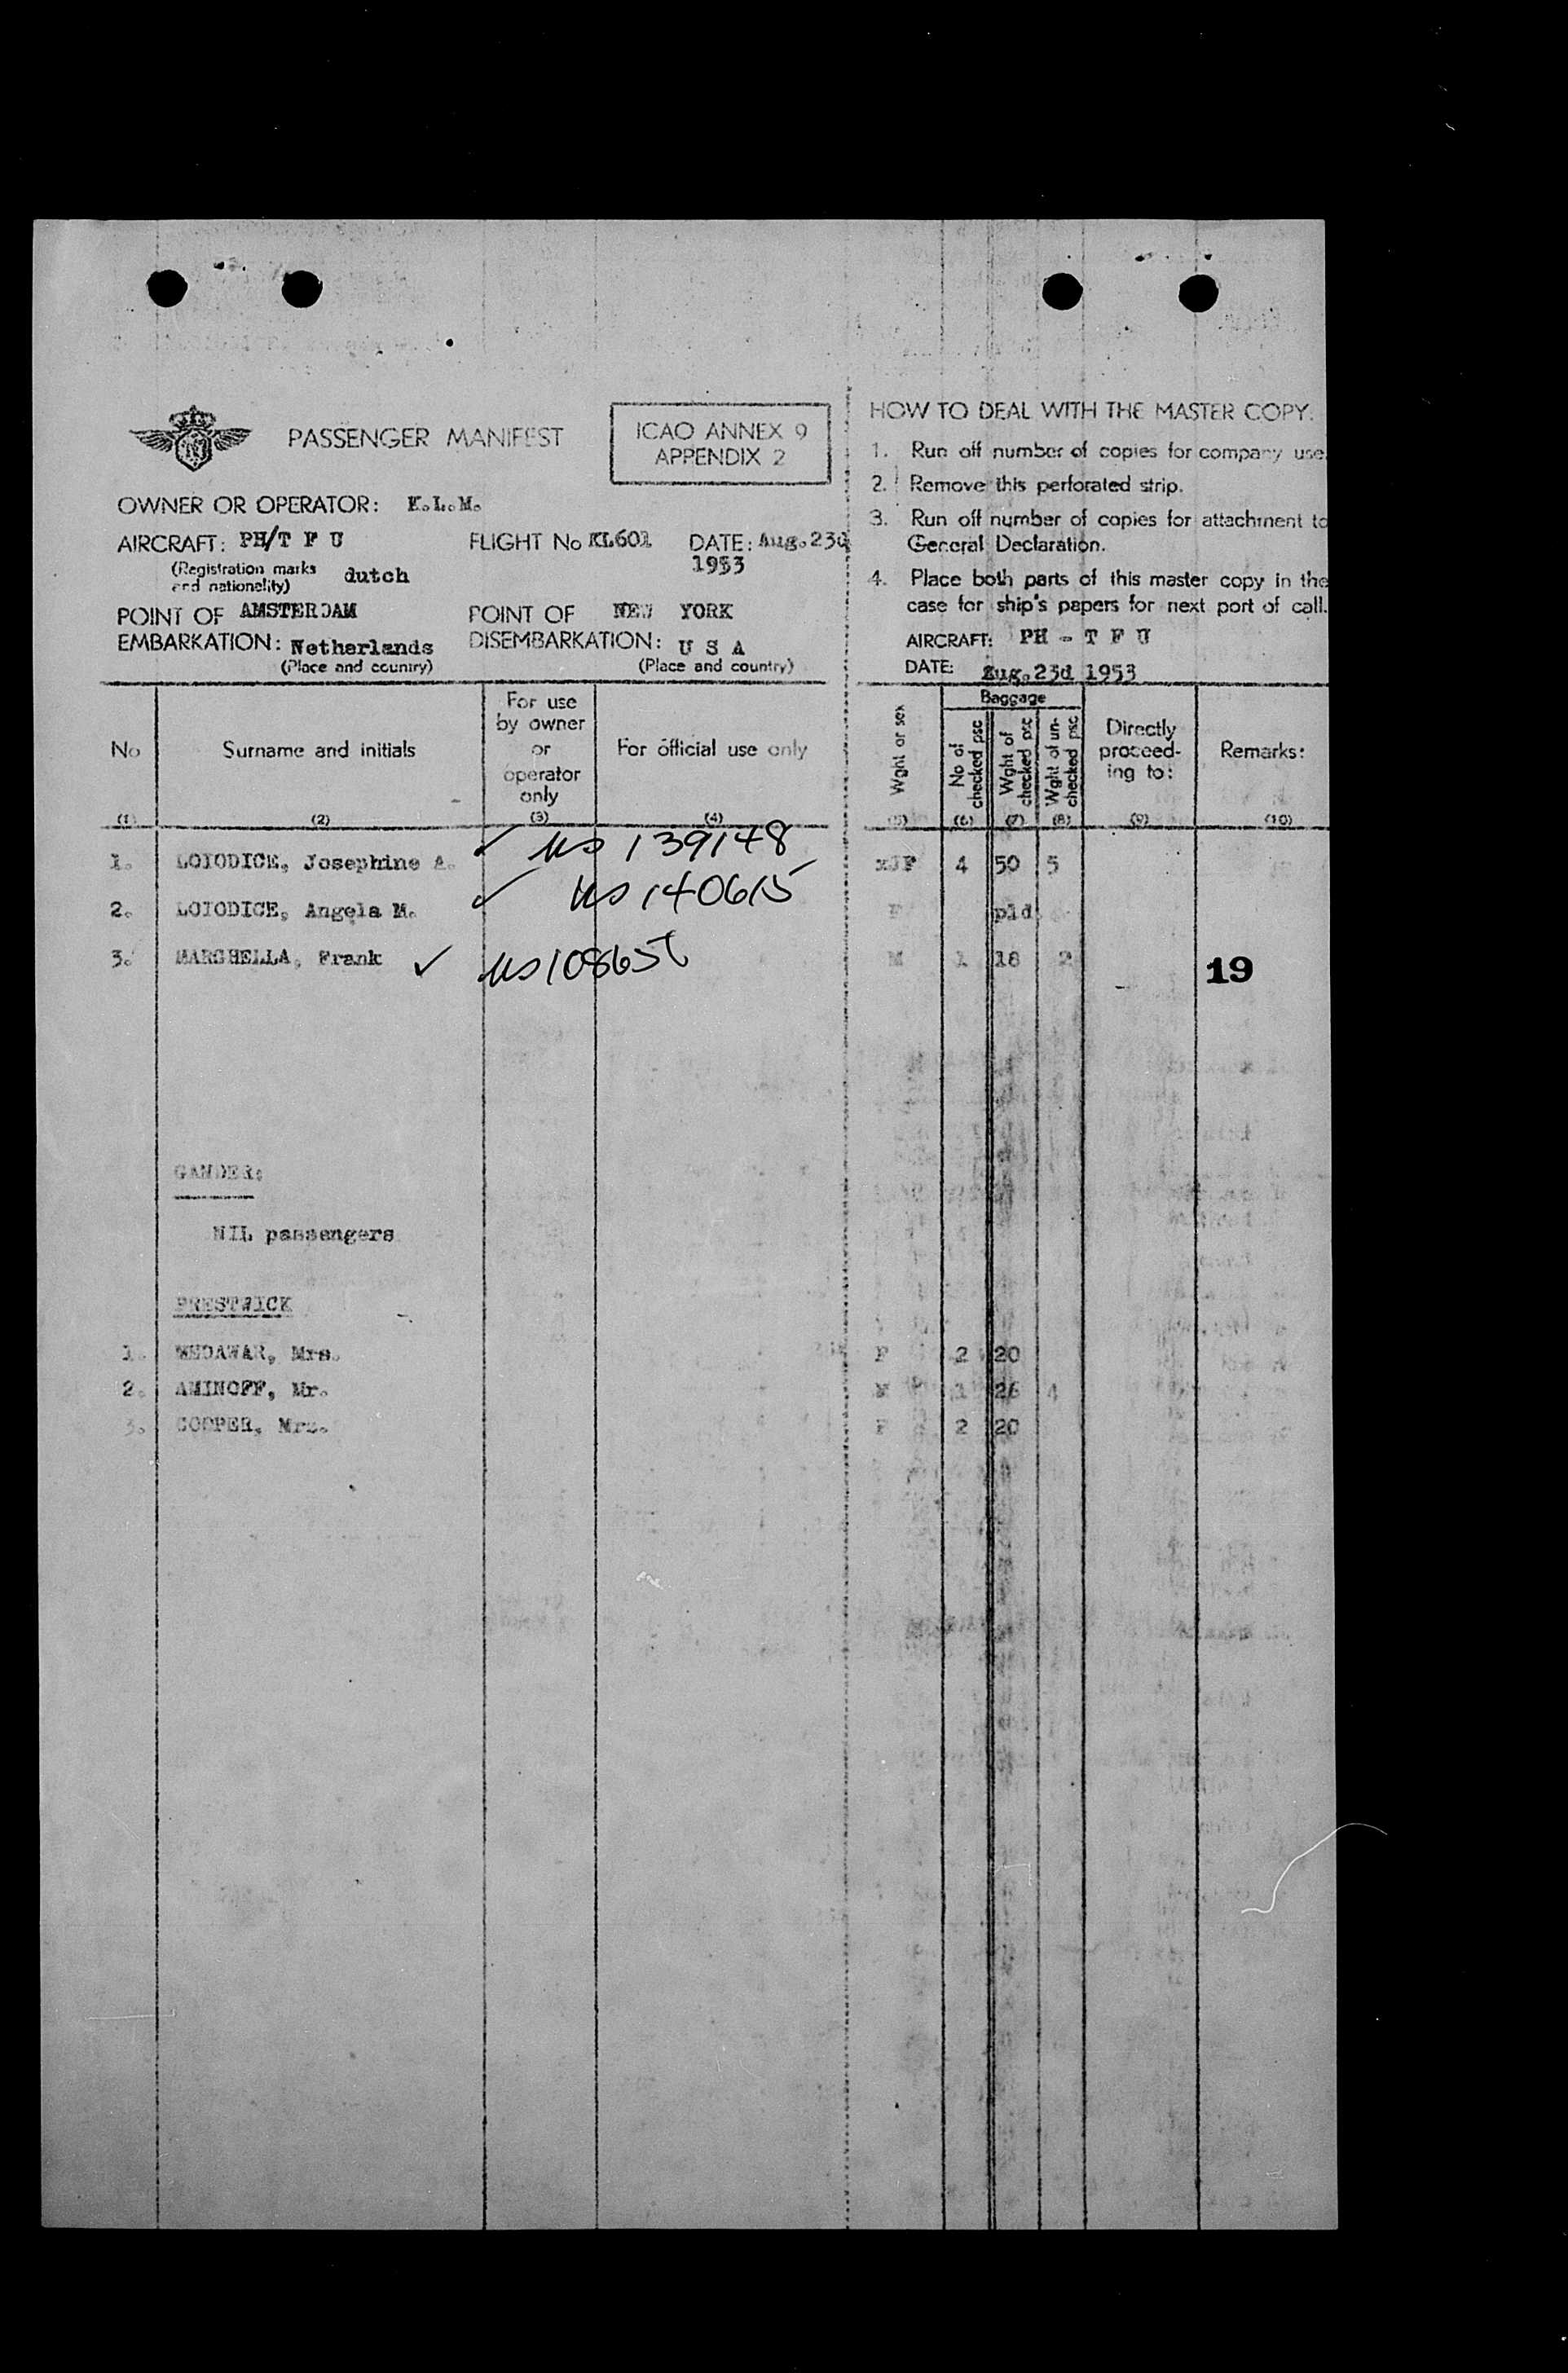 PASSENGER MANIFEST
ICAO ANNEX 9
APPENDIX 2
OWNER OR OPERATOR: K.L.M.
AIRCRAFT: PH/T F U
FLIGHT No KL601 DATE: Aug.23d
1953
(Registration marks
and nationality) dutch
POINT OF AMSTERDAM
EMBARKATION: Netherlands
(Place and country)
POINT OF NEW YORK
DISEMBARKATION: U S A
(Place and country)
No
(1)
Surname and initials
(2)
For use
by owner
or
operator
only
(3)
For official use only
(4)
1. LOIODICE, Josephine A. ✓ US 139148
2. LOIODICE, Angela M. ✓ US 140615
3. MARGHELLA, Frank ✓ US 10865
GANDER:
NIL passengers
PRESTWICK
1. WEDAWAR, Mrs.
2. AMINOFF, Mr.
3. COOPER, Mrs.
HOW TO DEAL WITH THE MASTER COPY.
1. Run off number of copies for company use.
2. Remove this perforated strip.
3. Run off number of copies for attachment to
General Declaration.
4. Place both parts of this master copy in the
case for ship's papers for next port of call.
AIRCRAFT: PH - T F U
DATE: Aug.23d 1953
Wght or sex
(5)
Baggage
No of
checked psc
(6)
Wght of
checked psc
(7)
Wght of un-
checked psc
(8)
Directly
proceed-
ing to:
(9)
Remarks:
(10)
F 4 50 5
F pld
M 1 18 2
19
F 2 20
M 1 26 4
F 2 20